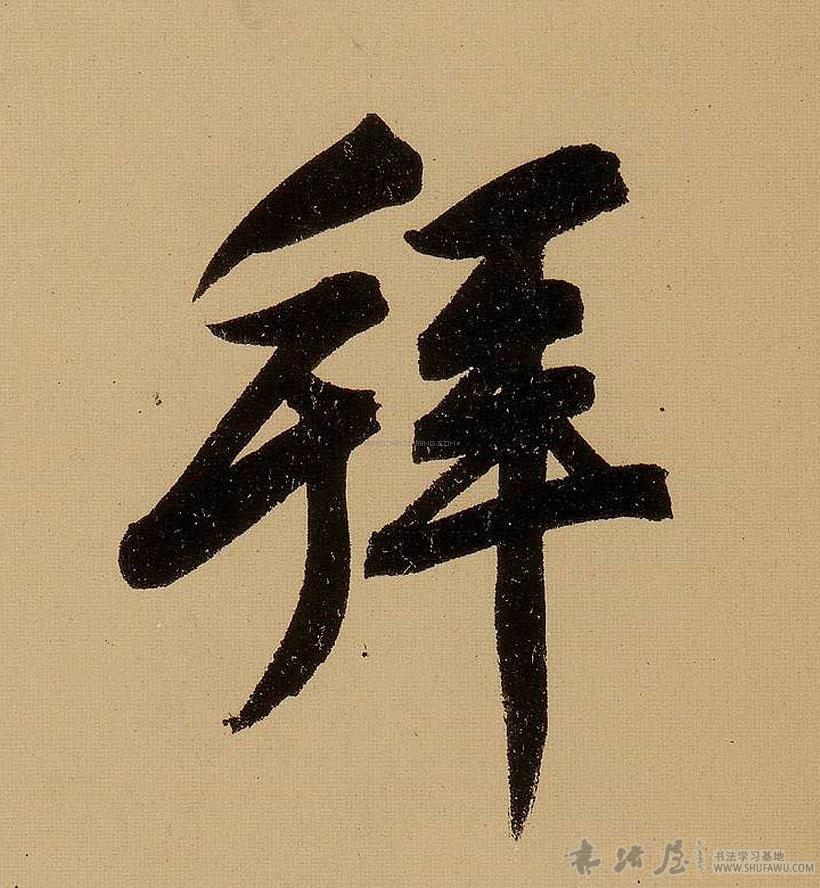 拜
书法屋
书法学习基地
WWW.SHUFAWU.COM